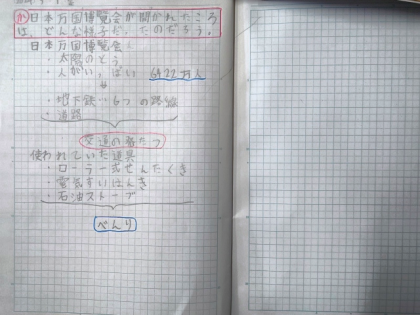 日本万国博覧会が開かれたころ
は、どんな様子だったのだろう。
日本万国博覧会
・太陽のとう
・人がいっぱい 6422万人
・地下鉄…6つの路線
・道路
交通の発たつ
使われていた道具
・ローラー式せんたくき
・電気すいはんき
・石油ストーブ
べんり